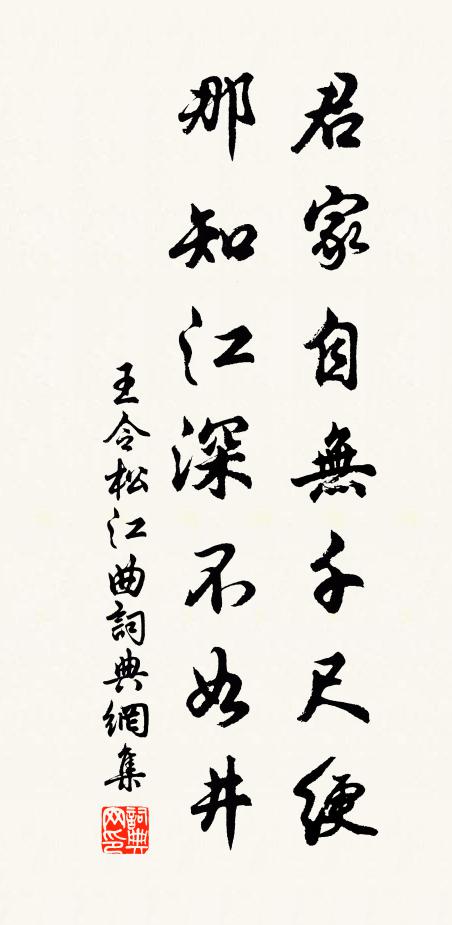 君家自無千尺綆
那知江深不如井
王令松江曲詞典網集
詞典网印